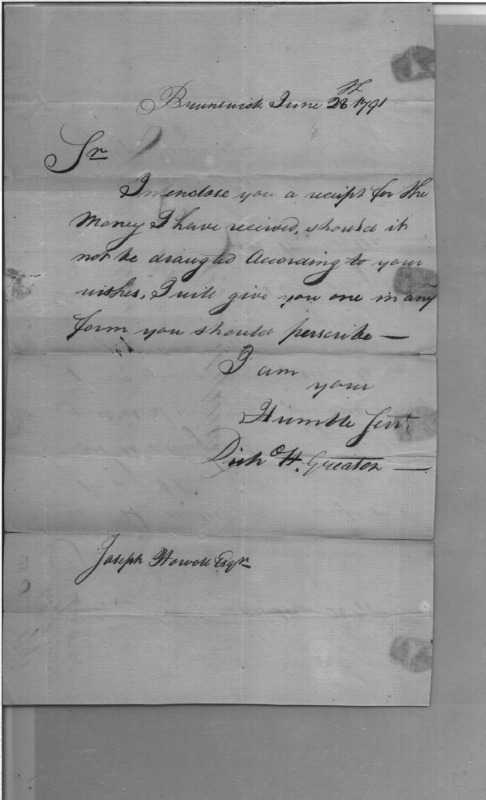 Brunswick June 28th 1791
Sr
I enclose you a receipt for the
Money I have recieved, should it
not be draugted According to your
wishes, I will give you one in any
form you should perscribe —
I am
your
Humble Servt
Richd H. Greaton —
Joseph Howell Esqr